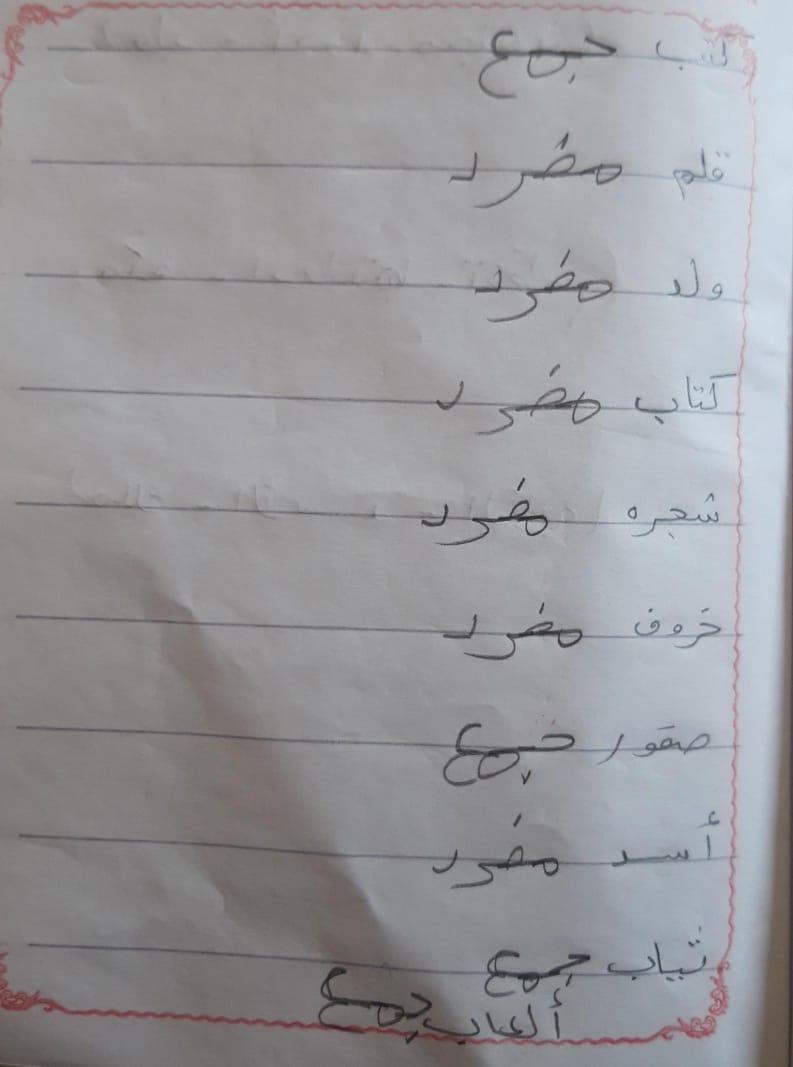 كتب جمع
قلم مفرد
ولد مفرد
كتاب مفرد
شجره مفرد
خروف مفرد
صقور جمع
أسد مفرد
ثياب جمع
ألعاب جمع